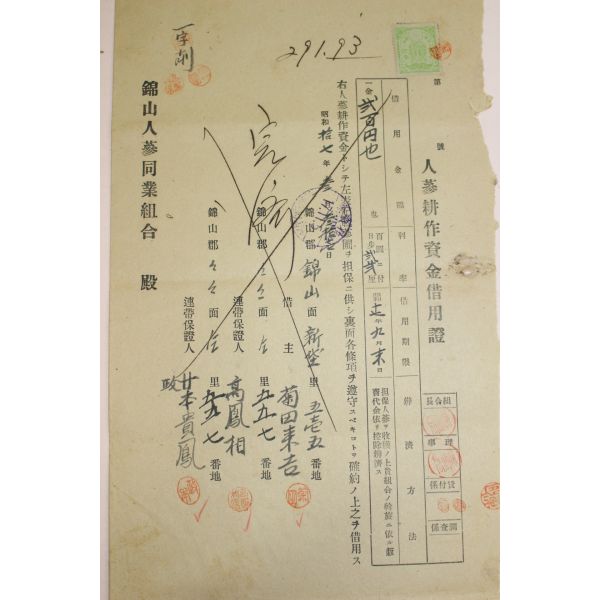 第　號
人蔘耕作資金借用證
組合長
理事
貸付係
調査係
借用金額
利率
借用期限
辨濟方法
一金貳百円也
也
百圓ニ付
日步貳
厘
自
七年九月末日
擔保人蔘ヲ收穫ノ上貴組合ノ斡旋ニ依ル販
賣代金依リ控除辨濟ス
右人蔘耕作資金トシテ左
ヲ擔保ニ供シ裏面各條項ヲ遵守スベキコトヲ確約ノ上之ヲ借用ス
昭和拾七年参月
日
錦山郡錦山面新垈里五壱五番地
借主
菊田来吉
錦山郡〃〃面仝里五五七番地
連帶保證人
高鳳相
錦山郡〃〃面仝里五五七番地
連帶保證人
廿本貴鳳
完濟
錦山人蔘同業組合　殿
一字削
291.93